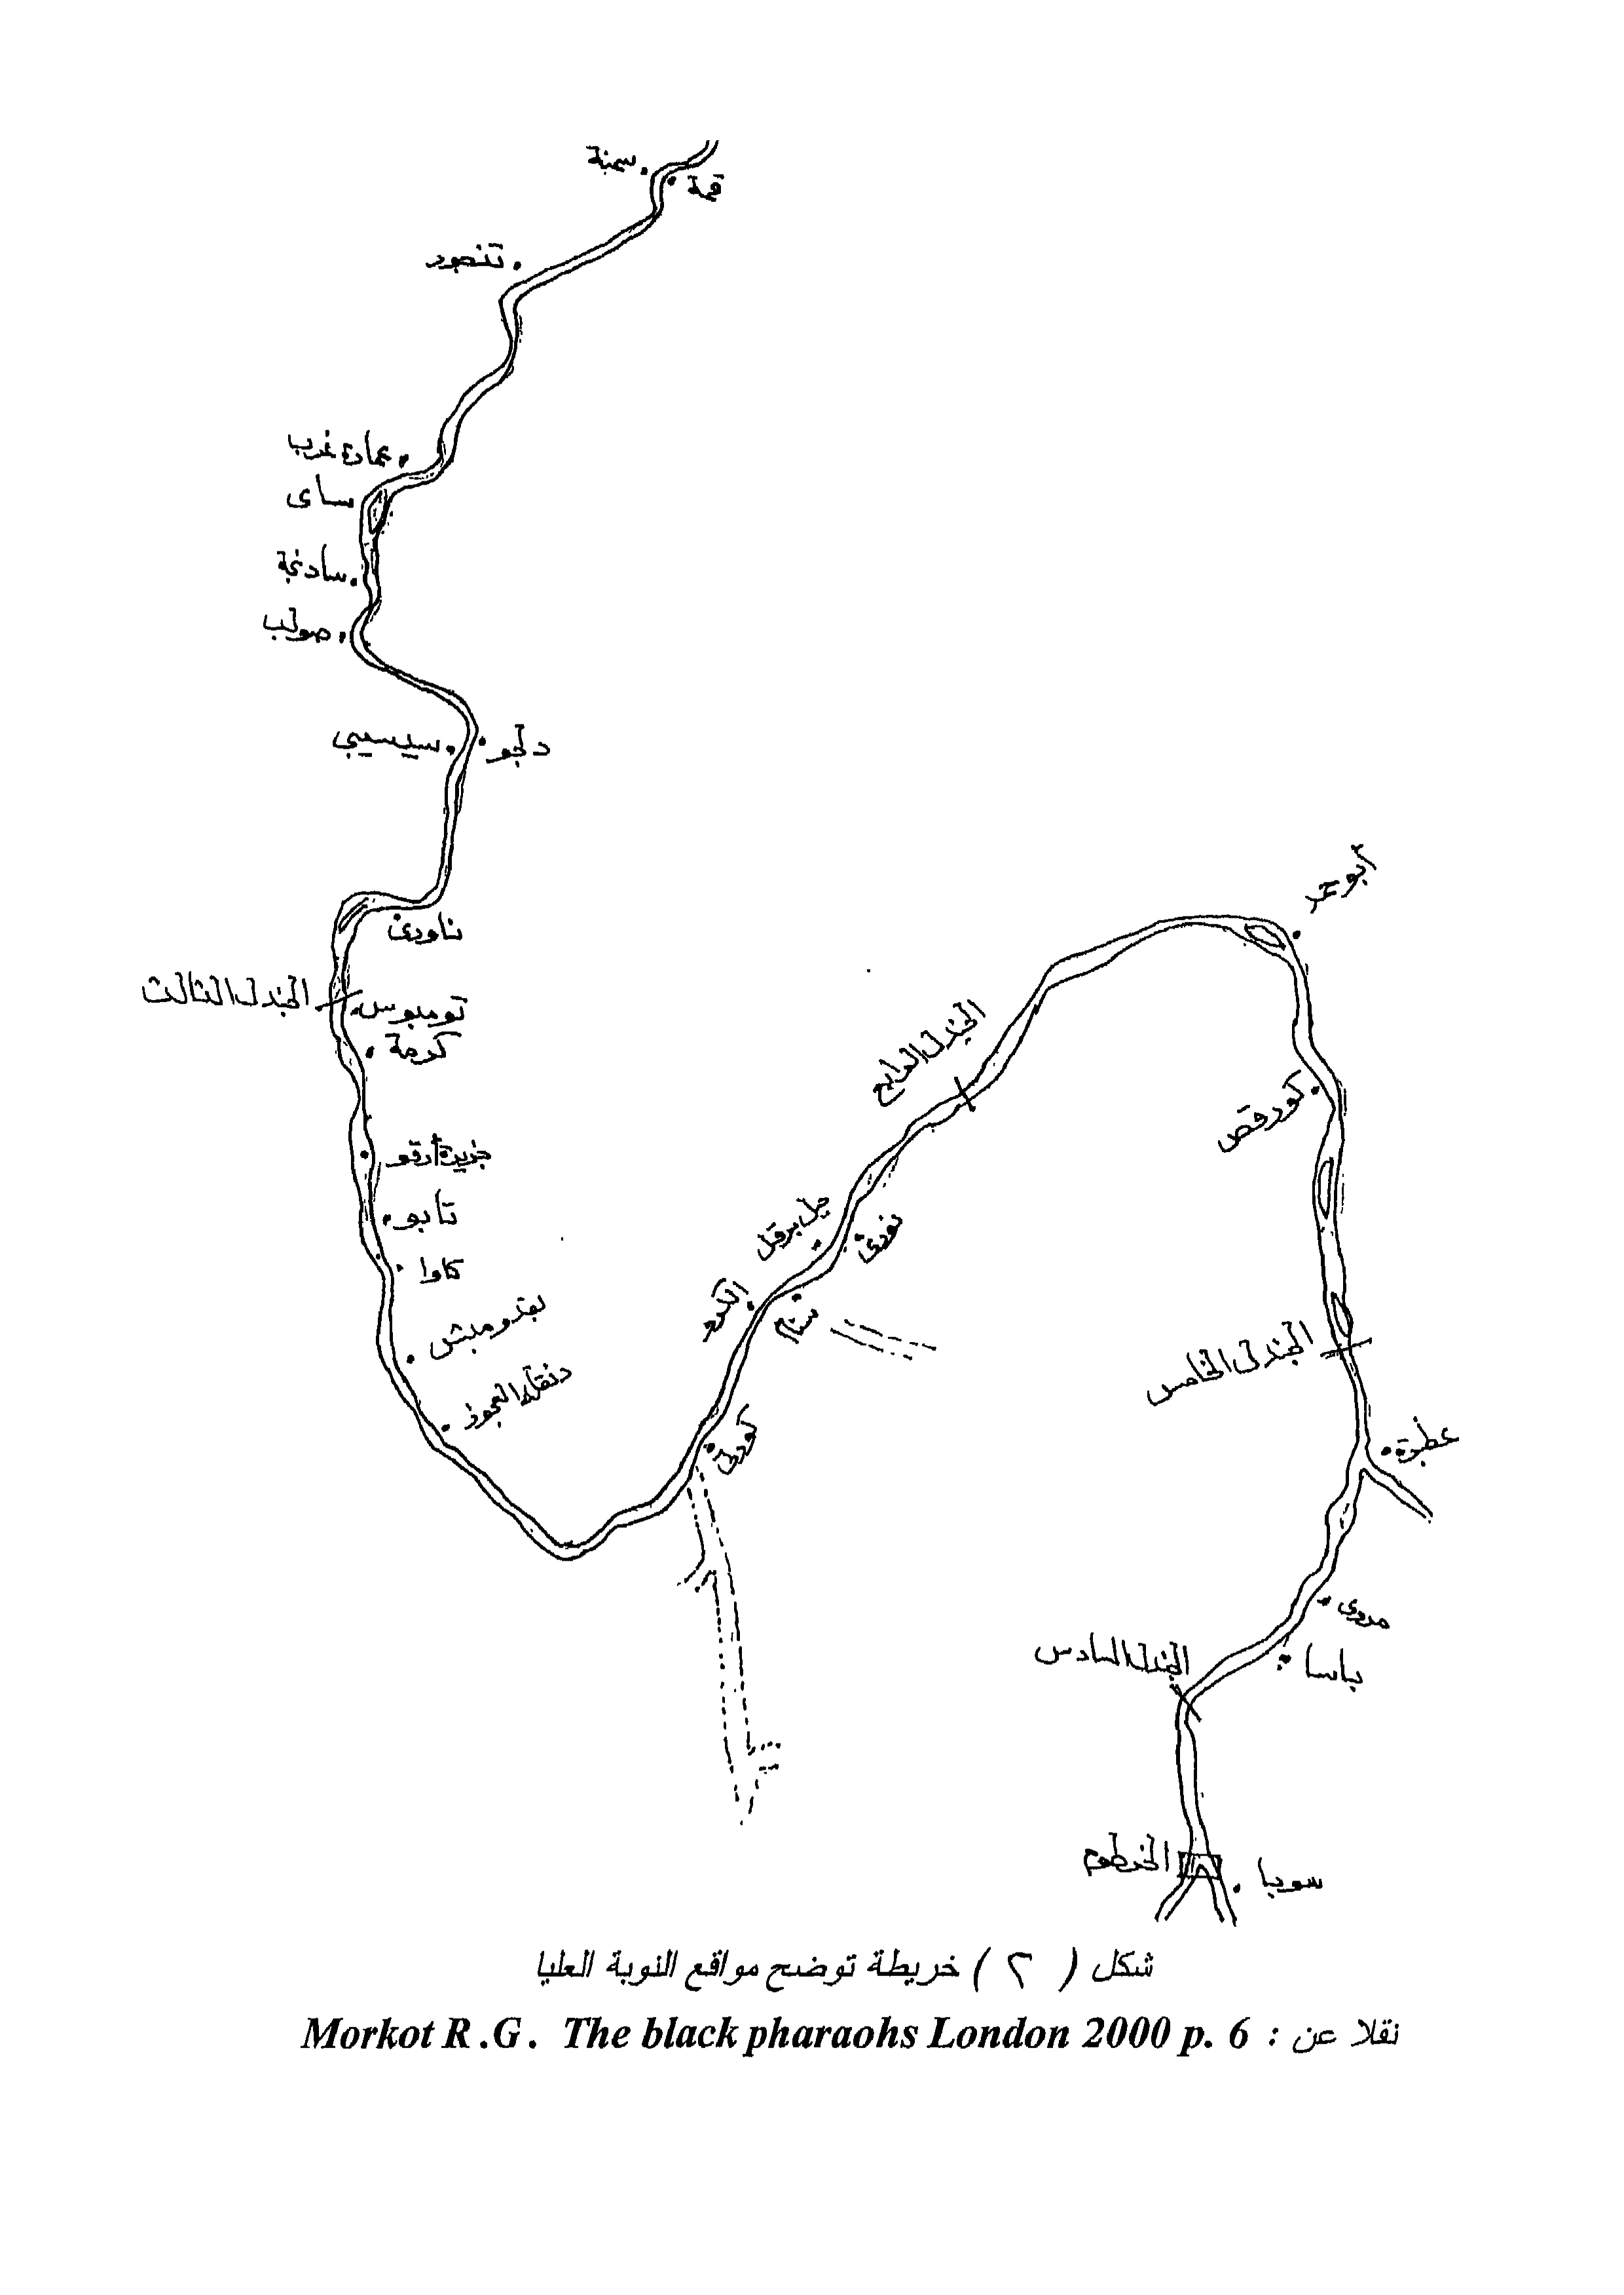 سمنة
قمة
تنصور
عمارة غرب
ساى
سادنجة
صولب
سيسيبى
دلجو
ناورى
الجندل الثالث
تومبوس
كرمة
جزيرة أرقو
تابو
كاوا
دنقلة العجوز
كورتى
الكرو
سنام
جبل برقل
نورى
الجندل الرابع
أبو حمر
كورقص
الجندل الخامس
عطبرة
مروى
باسا
الجندل السادس
الخرطوم
سوبا
شكل ( ٢ ) خريطة توضح مواقع النوبة العليا
نقلا عن : Morkot R .G . The black pharaohs London 2000 p. 6